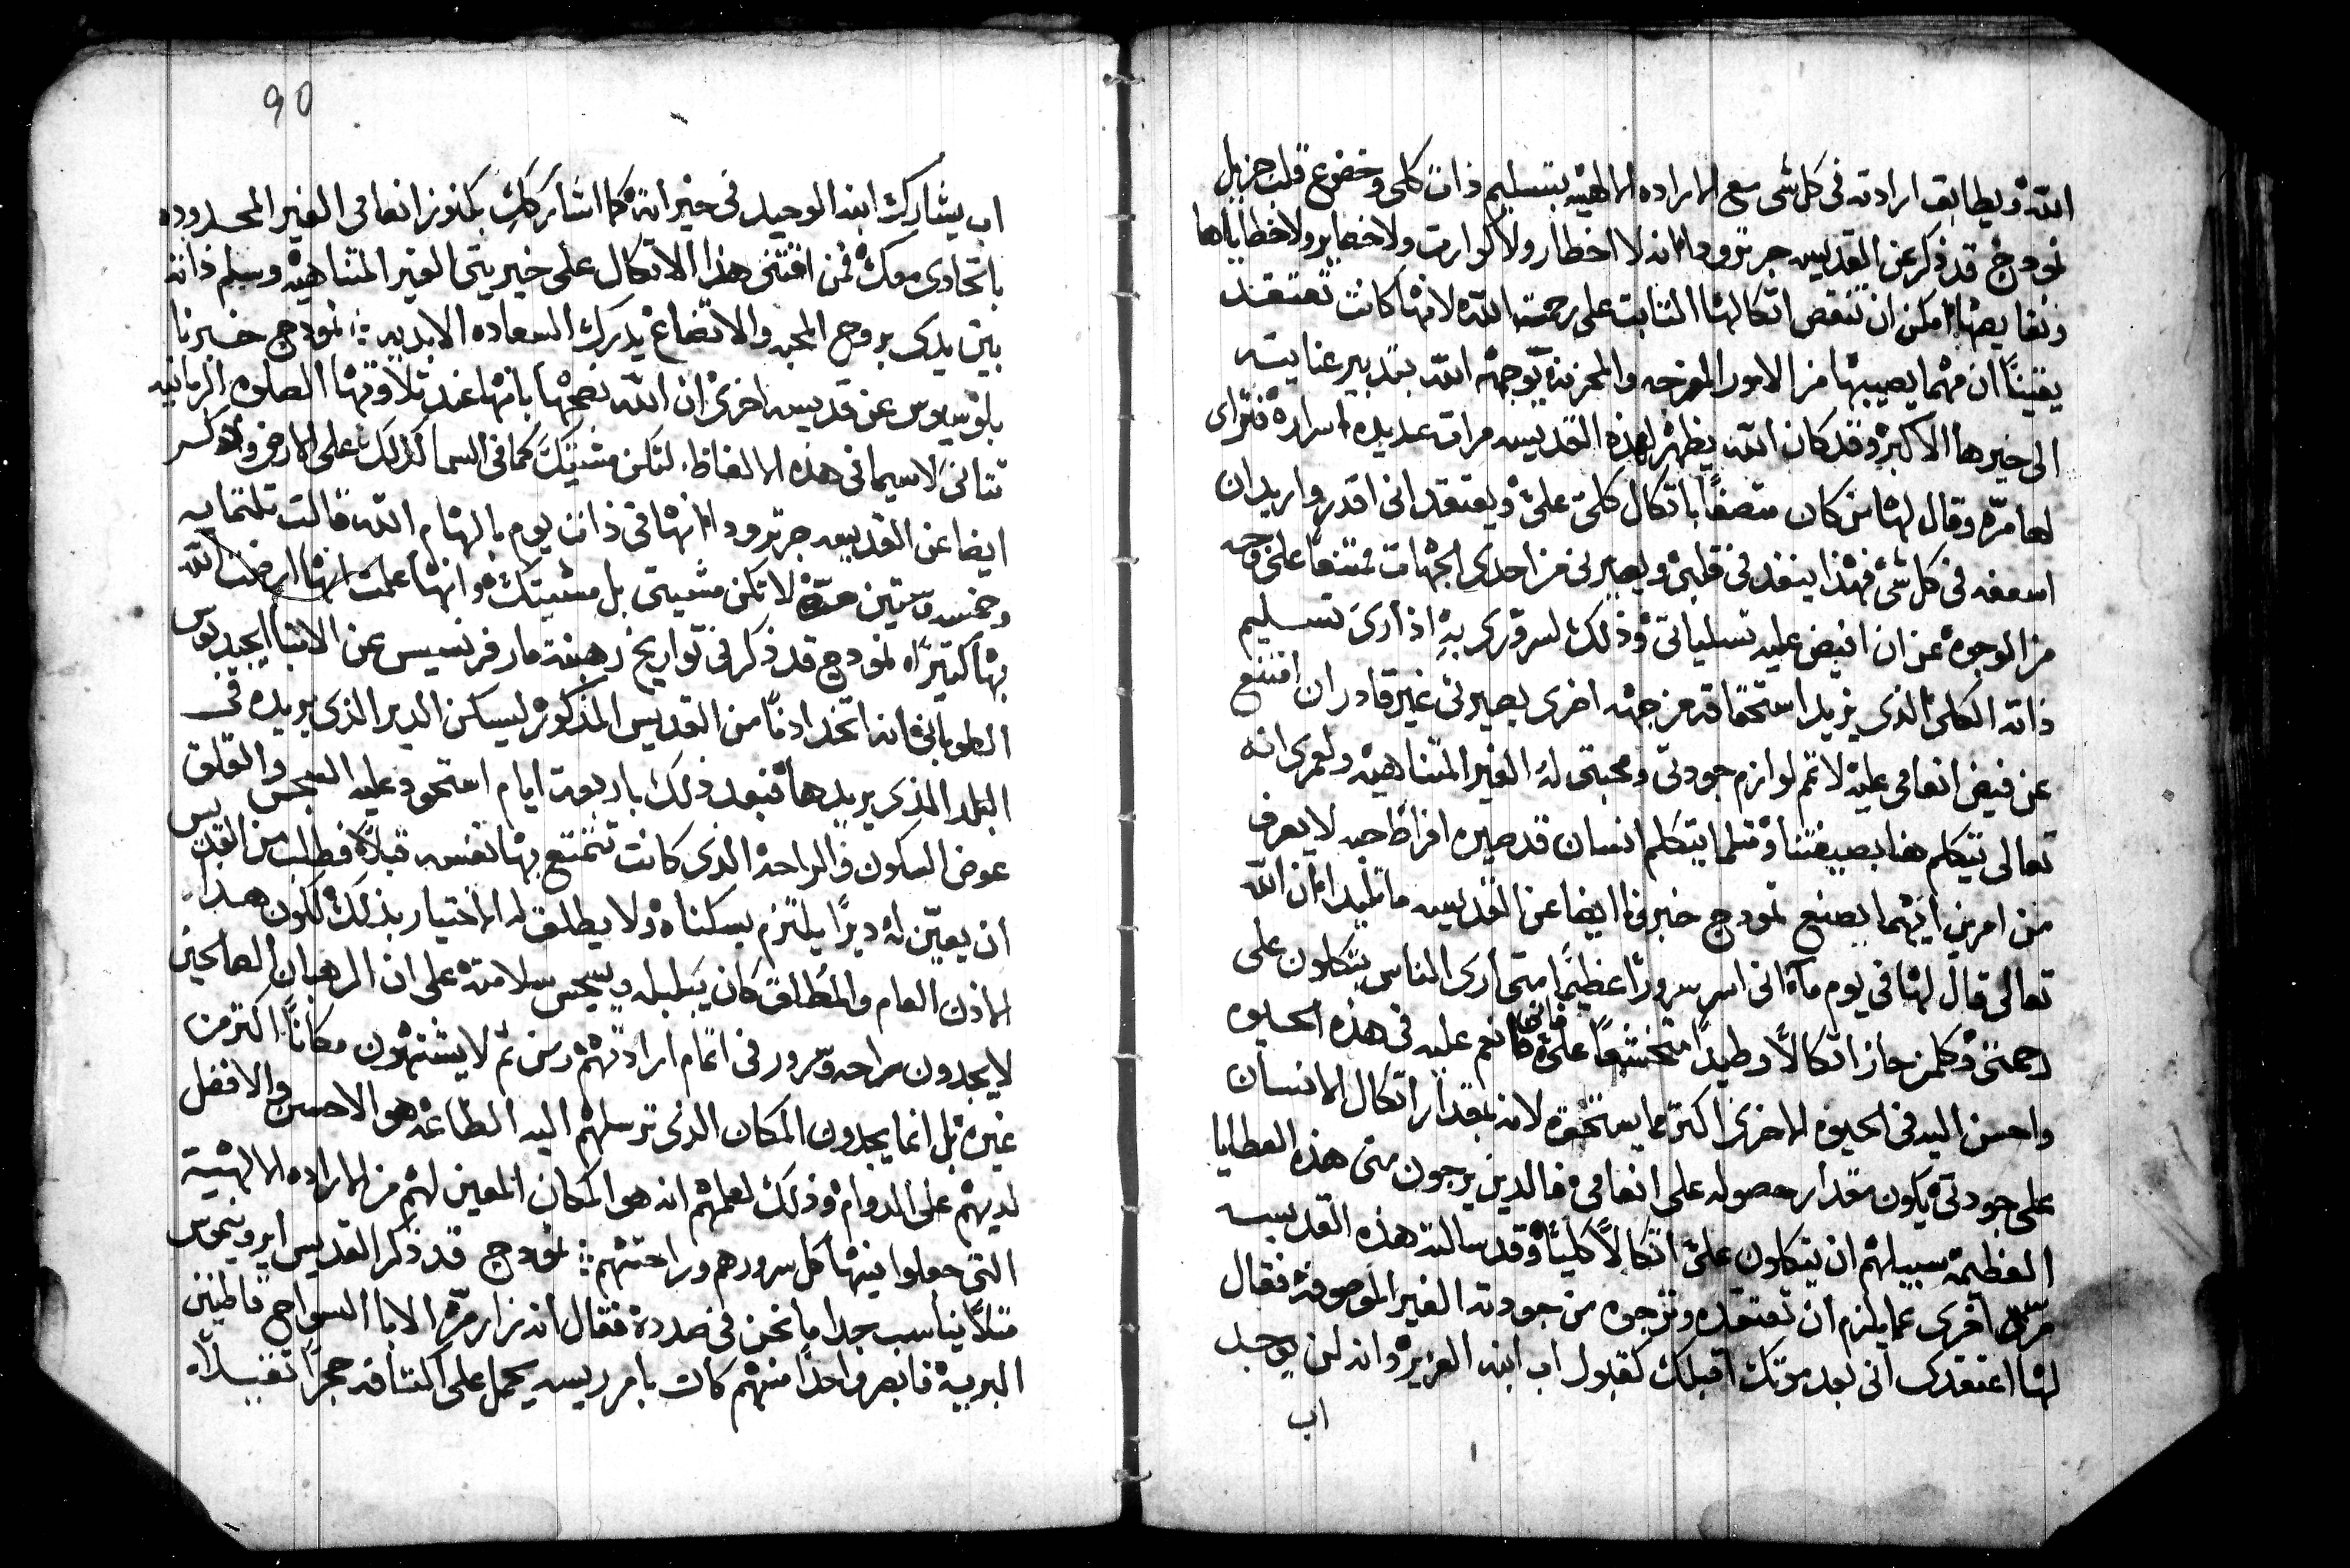 الله ويطابق ارادته فى كل شى مع الاراده الالهيه بتسليم ذات كلى وخضوع قلب جزيل
نمودج قد ذكر عن القديسه جرترودا انه لا اخطار ولا كوارث ولا خصاير ولا خطاياها
ونقايصها امكن ان تنقص اتكالها الثابت على رحمة الله لانها كانت تعتقد
يقيناً ان مهما يصيبها من الامور المفرحه والمحزنة يوجهه الله بتدبير عنايته
الى خيرها الاكبر وقد كان الله يظهر لهذه القديسه مرات عديده اسراره فتراى
لها مرّه وقال لها من كان متصفاً باتكال كلى علىّ ويعتقد انى اقدر واريد ان
اسعفه فى كل شى فهذا ينفد فى قلبى ويصيرنى من احدى الجهات ممتنعاً على وجه
من الوجوه عن ان افيض عليه تسلياتى وذلك لسرورى به اذ ارى تسليم
ذاته الكلى الذى يزيد استحقاقه من جهه اخرى يصيرنى غير قادر ان امتنع
عن فيض انعامى عليه لاتمم لوازم جودتى ومحبتى له الغير المتناهيه ولعمرى انه
تعالى يتكلم هنا بصيغتنا ومثلما يتكلم انسان قد صيره افراط حبه لا يعرف
من امرين ايهما يصنع نمودج خبر فى ايضا عن القديسه ماتيلدا ان الله
تعالى قال لها فى يوم ما انى اسر سرورًا عظيمًا متى ارى الناس يتكلون على
رحمتى وكلمن حاز اتكالاً وطيدًا متخشعاً علىّ فانى انعم عليه فى هذه الحيوه
واحسن اليه فى الحيوه الاخرى اكثر مما يستحقه لانه بمقدار اتكال الانسان
على جودتى يكون مقدار حصوله على انعامى فالذين يرجون منى هذه العطايا
العظيمة سبيلهم ان يتكلون علىّ اتكالاً كلياً وقد سالته هذه القديسه
مرّه اخرى عما يلزم ان تعتقده وترجوه من جودته الغير الموصوفه فقال
لها اعتقدى انى بعد موتك اقبلك كقبول اب ابنه العزيز وانه لن يوجد
اب
90
اب يشارك ابنه الوحيد فى خيراته كما اشاركك بكنوز انعامى الغير المحدوده
باتحادى معك فمن اقتنى هذا الاتكال على خيريتى الغير المتناهيه وسلم ذاته
بين يدى بروح المحبه والاتضاع يدرك السعاده الابديه نمودج خبرنا
بلوسيوس عن قديسه اخرى ان الله نصحها بانها عند تلاوتها الصلوه الربانيه
تتانى لاسيما فى هذه الالفاظ لتكن مشيتك كما فى السما كذلك على الارض وذكر
ايضا عن القديسه جرترودا انها فى ذات يوم بالهام الله قالت تلتمايه
وخمسه وستين مرّة لا تكن مشيتى بل مشيتك وانها علمت انها ارضت الله
بها كتيرًا نمودج قد ذكر فى تواريخ رهبنة مار فرنسيس عن الانبا ايجيديوس
الطوبانى انه اتخد ادنًا من القديس المذكور ليسكن الدير الذى يريده فى
البلد الذى يريدها فبعد ذلك باربعة ايام استحود عليه السجس والقلق
عوض السكون والراحه الذى كانت تتمتع بها نفسه قبلاً فطلب من القديس
ان يعيّن له ديرًا يلتزم بسكناه ولا يطلق له الاختيار بذلك لكون هذا
الاذن العام والمُطلق كان يبلبله ويسجس سلامته على ان الرهبان الصالحين
لا يجدون راحه وسرور فى اتمام ارادتهم ومن تم لا يشتهون مكاناً اكتر من
غيره بل انما يجدون المكان الذى ترسلهم اليه الطاعة هو الاحسن والافضل
لديهم على الدوام وذلك لعلمهم انه هو المكان المعين لهم من الاراده الالهية
التى جعلوا فيها كل سرورهم وراحتهم نمودج قد ذكر القديس ايرونيموس
مثلاً يناسب جدا ما نحن فى صدده فقال انه زار مرّة الابا السواح قاطنين
البريه فابصر واحدًا منهم كان بامر ريسه يحمل على اكتافه حجرًا تقيلاً